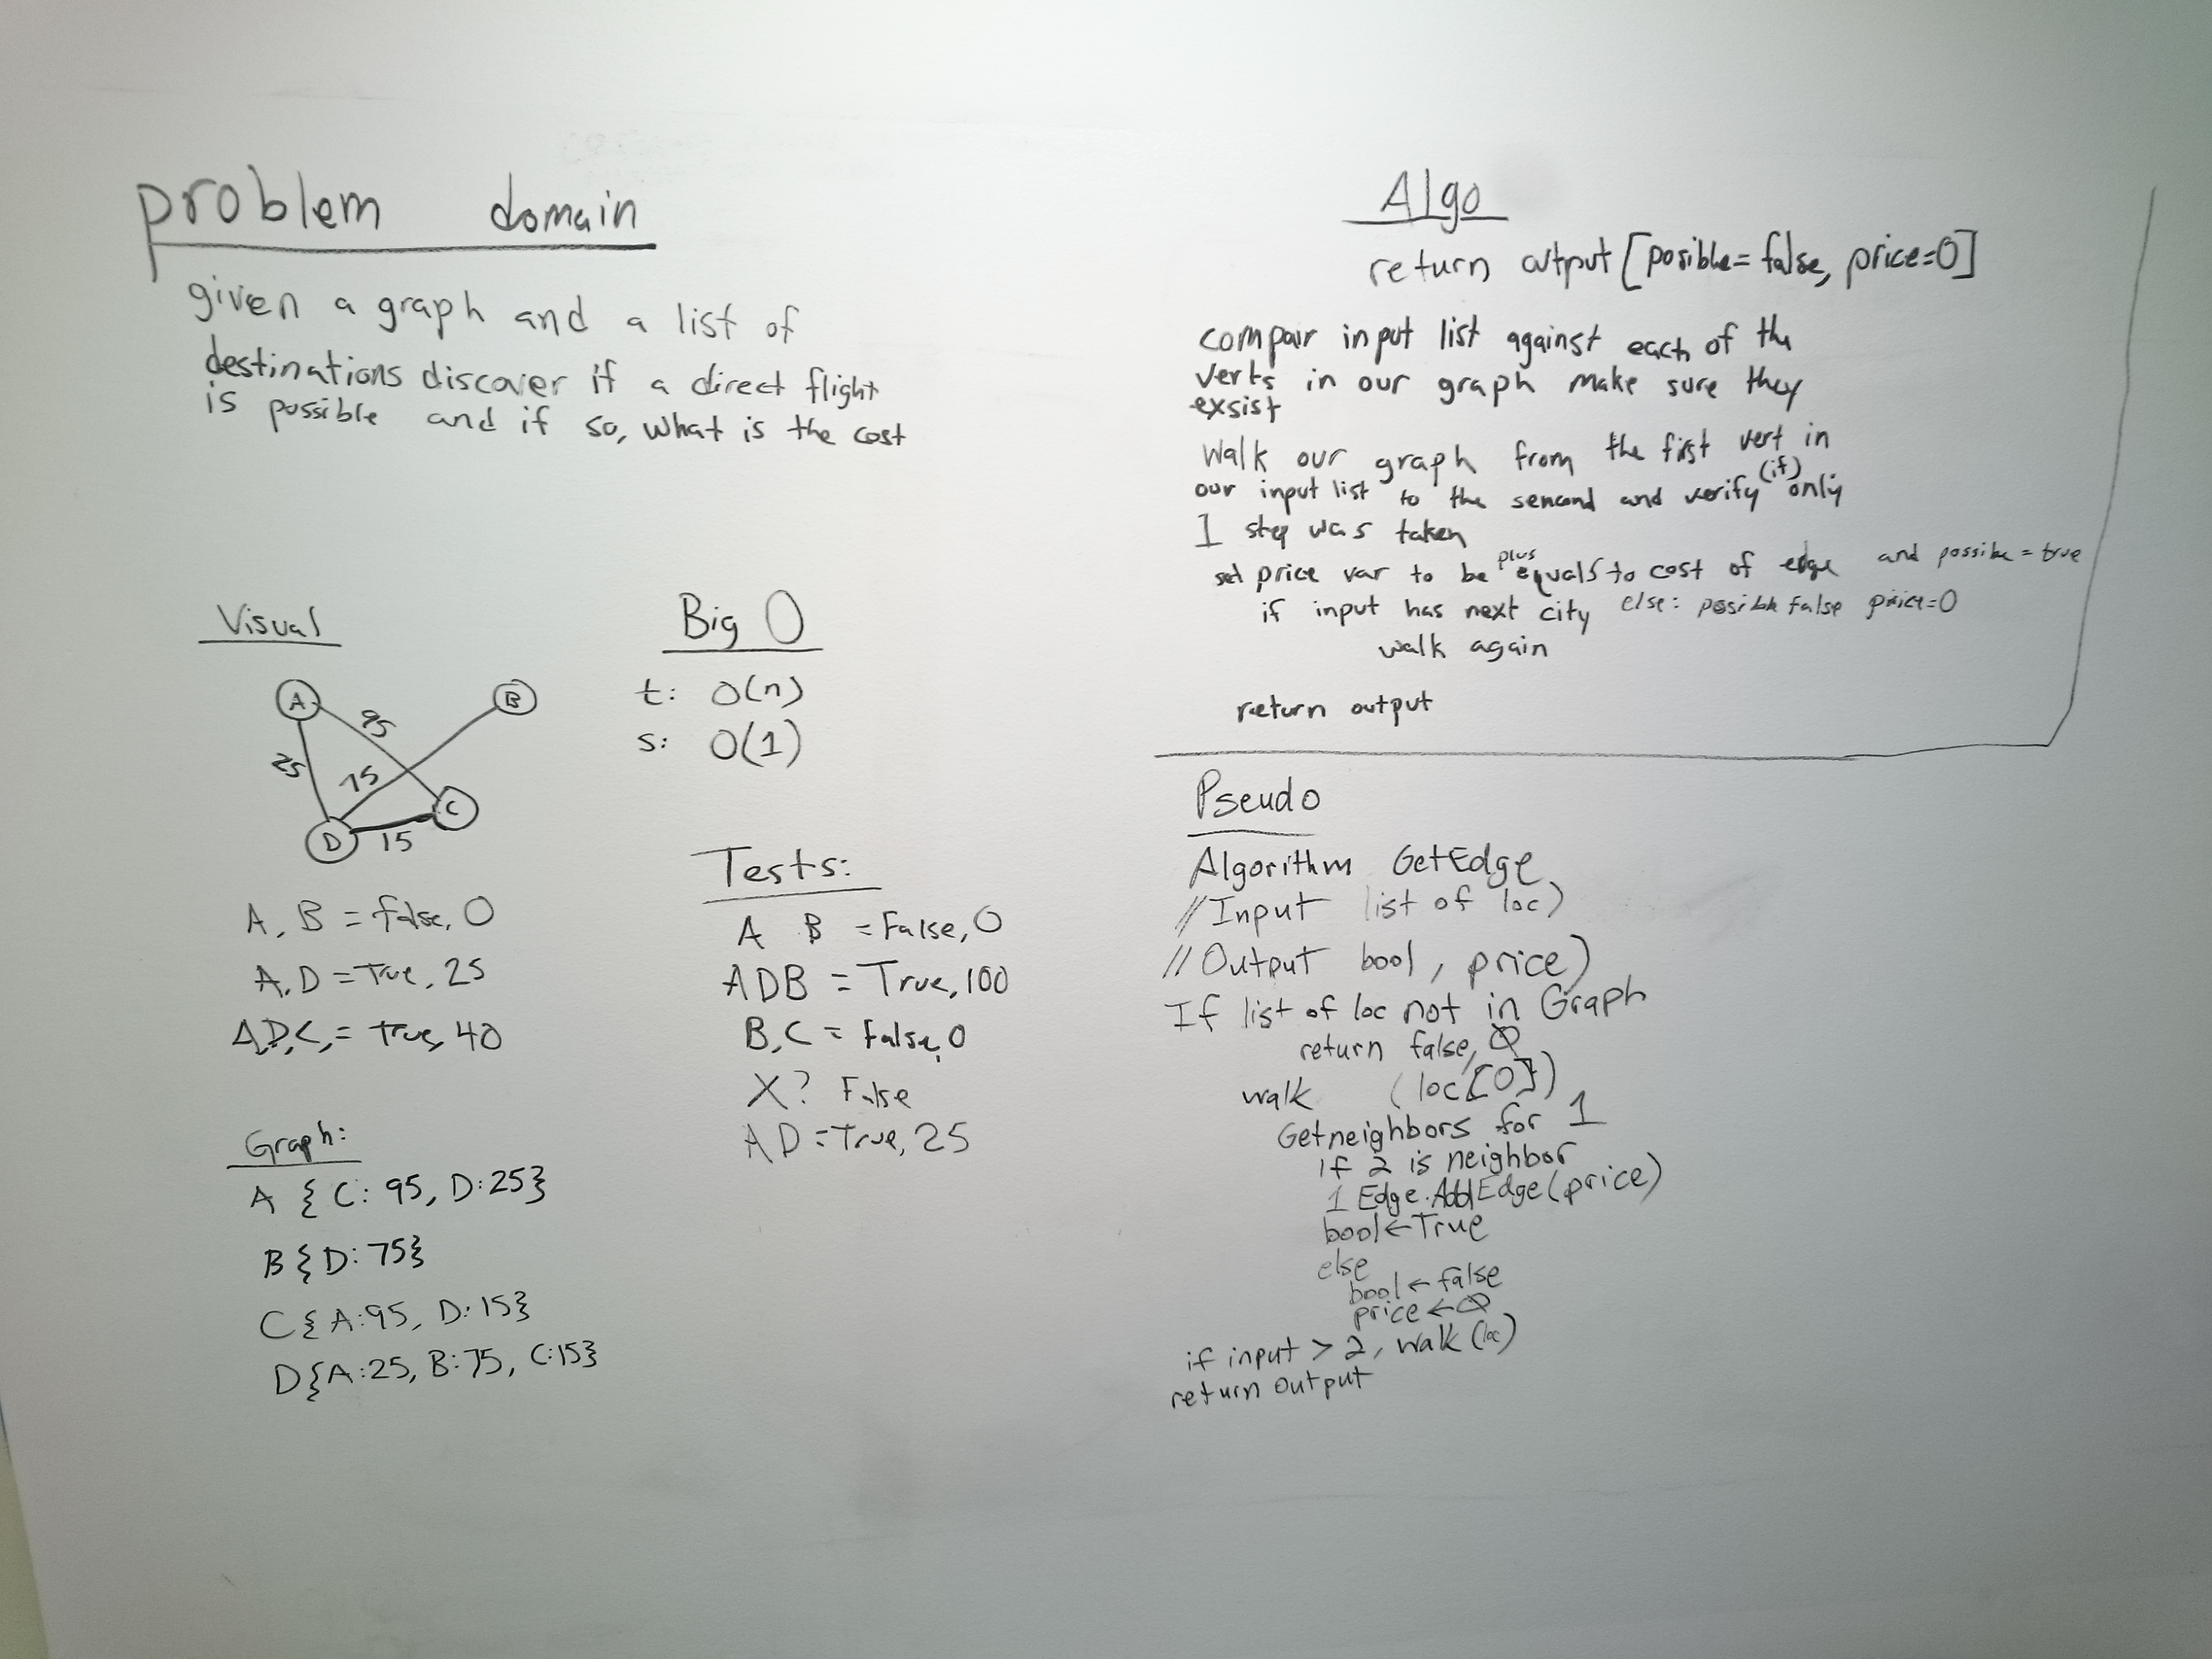 problem domain
given a graph and a list of
destinations discover if a direct flight
is possible and if so, what is the cost
Visual
A
B
95
25
75
C
D
15
A, B = false, 0
A, D = True, 25
A,D,C, = true, 40
Graph:
A { C: 95, D:25}
B { D: 75}
C { A:95, D:15}
D{A:25, B:75, C:15}
Big O
t: O(n)
s: O(1)
Tests:
A B = False, 0
ADB = True, 100
B, C = False, 0
X? False
AD = True, 25
Algo
return output [posible= false, price=0]
compair input list against each of the
verts in our graph make sure they
exsist
Walk our graph from the first vert in
our input list to the sencond and verify (if) only
1 step was taken
set price var to be plus equals to cost of edge and possible = true
if input has next city else: posible false price=0
walk again
return output
Pseudo
Algorithm GetEdge
// Input list of loc)
// Output bool, price)
If list of loc not in Graph
return false, 0
walk (loc[0])
Getneighbors for 1
if 2 is neighbor
1 Edge.AddEdge(price)
bool ← True
else
bool ← false
price ← 0
if input > 2, walk (loc)
return output